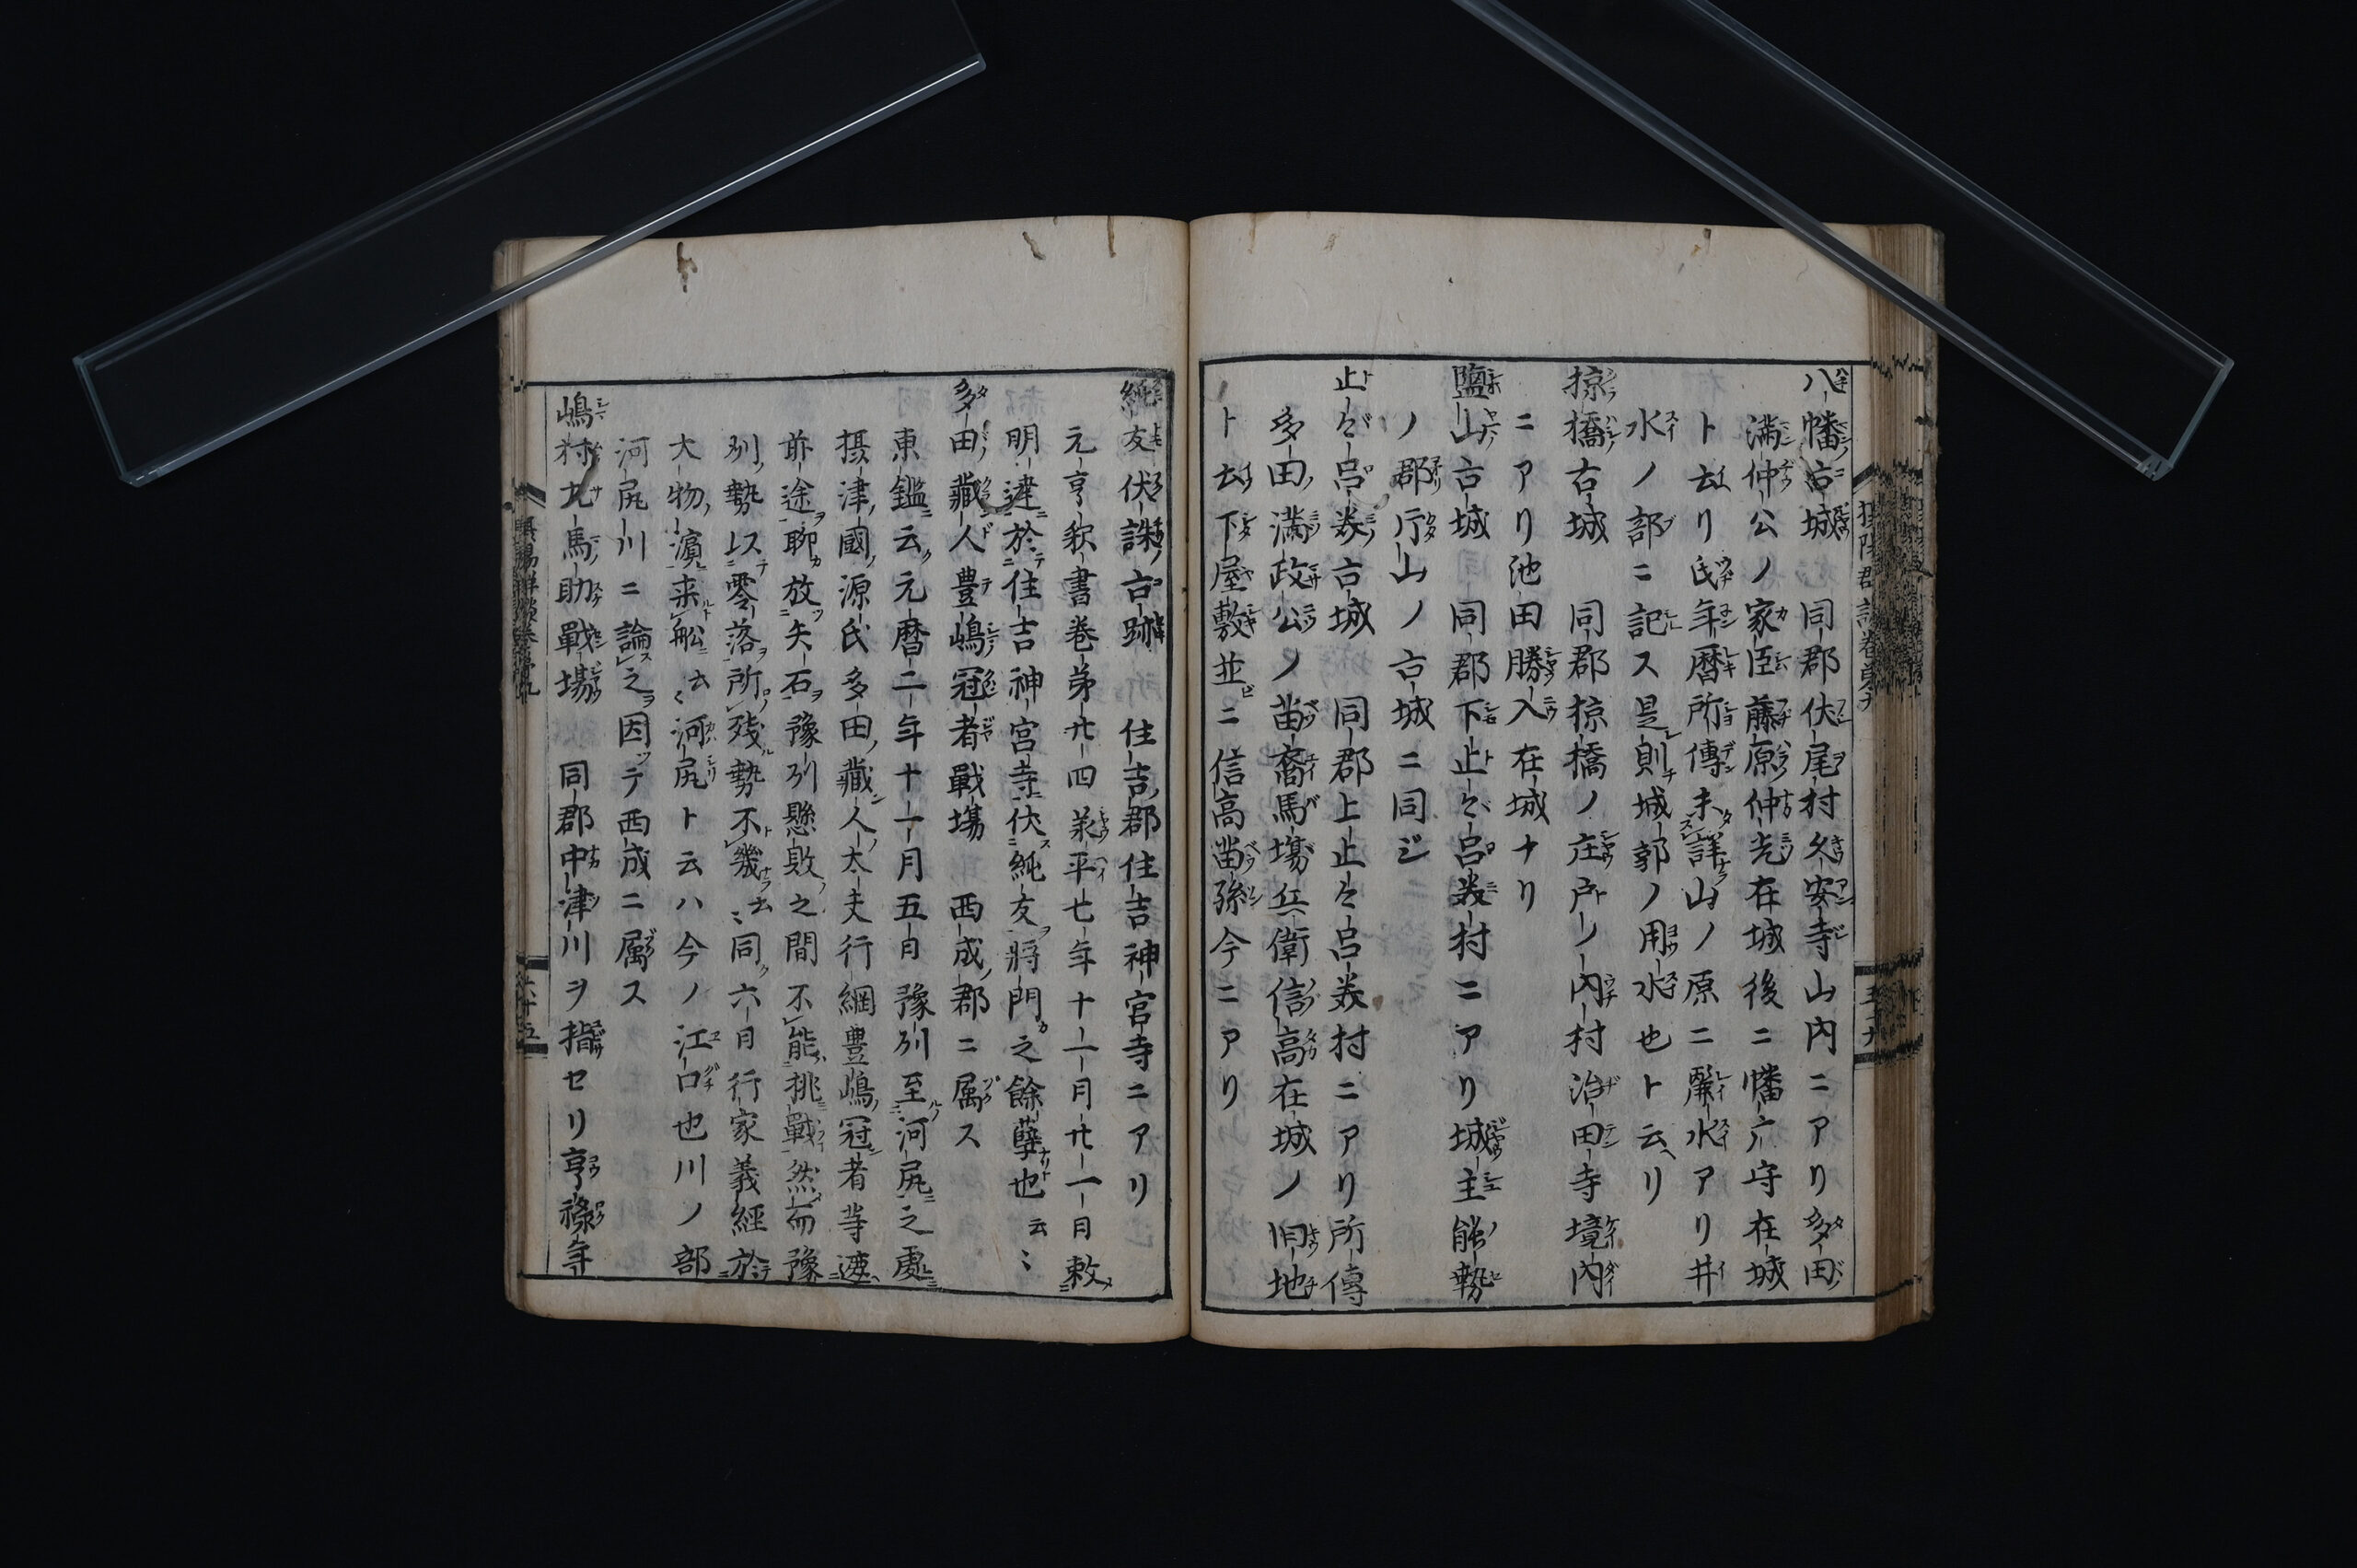 八幡古城 同郡伏尾村久安寺山内ニアリ多田
満仲公ノ家臣藤原仲光在城後ニ幡广守在城
ト云リ氏年暦所傳未詳山ノ原ニ麗水アリ井
水ノ部ニ記ス是則城郭ノ用水也ト云リ
掠橋古城 同郡掠橋ノ庄戸ノ内村治田寺境内
ニアリ池田勝入在城ナリ
塩山古城 同郡下止々呂美村ニアリ城主能勢
ノ郡庁山ノ古城ニ同ジ
止々呂美古城 同郡上止々呂美村ニアリ所傳
多田満政公ノ苗裔馬塲兵衛信高在城ノ旧地
ト云下屋敷並ニ信高苗孫今ニアリ
純友伏誅古跡 住吉郡住吉神宮寺ニアリ
元亨釈書巻第廿四義平七年十一月廿一日敕
明達於住吉神宮寺伏純友將門之餘孽也云〻
多田藏人豊嶋冠者戰塲 西成郡ニ属ス
東鑑云元暦二年十一月五日豫刕至河尻之處
摂津國源氏多田藏人太夫行綱豊嶋冠者等遮
前途聊放矢石豫刕懸敗之間不能挑戰然而豫
刕勢以零落所残勢不幾云〻同六日行家義經於
大物濵乗舩云〻河尻ト云ハ今ノ江口也川ノ部
河尻川ニ論之因テ西成ニ属ス
嶋村九馬助戰塲 同郡中津川ヲ指セリ享禄年